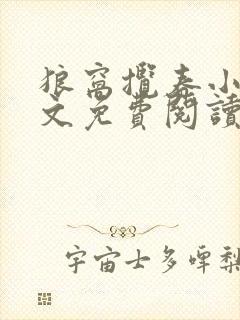 狼窩攬春小
文免費閱讀
宇宙士多啤梨